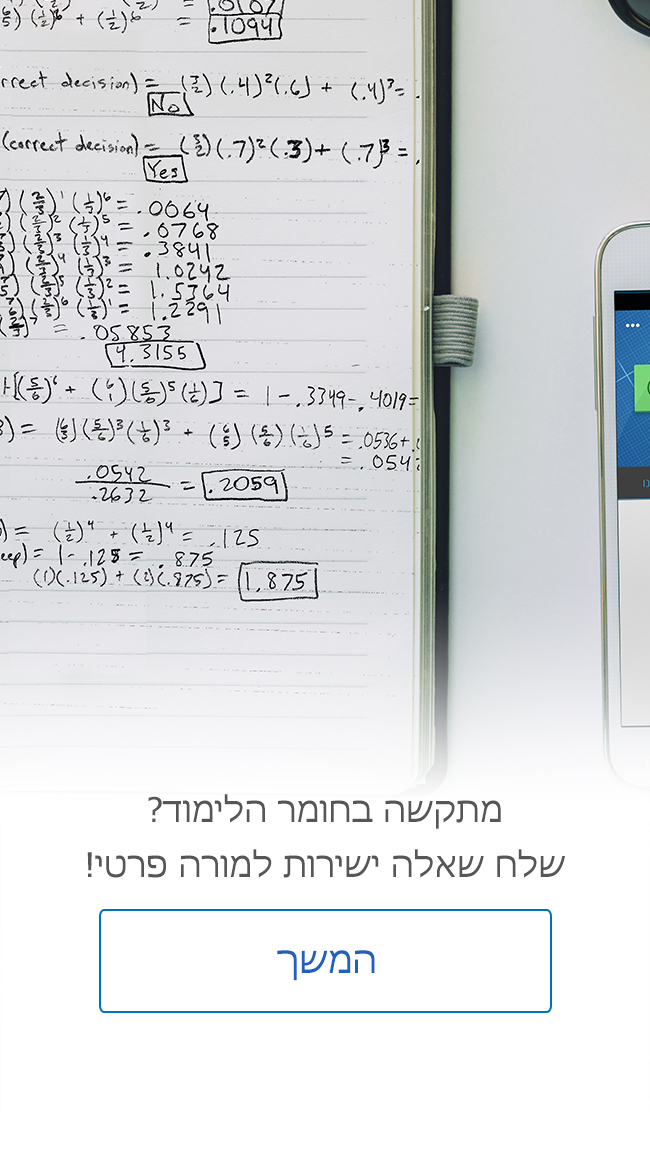 (1/2)⁶ + (1/2)⁶ = .1094
rrect decision) = (3/2)(.4)²(.6) + (.4)³ = .
No
(correct decision) = (3/2)(.7)²(.3) + (.7)³ = .
Yes
(1/3)⁶ = .0064
(1/3)⁵ = .0768
(1/3)⁴ = .3841
(1/3)³ = 1.0242
(1/3)² = 1.5764
(1/3)¹ = 1.2291
= .05853
4.3155
[(5/6)⁶ + (6/1)(5/6)⁵(1/6)] = 1 - .3349 - .4019 =
) = (6/3)(5/6)³(1/6)³ + (6/5)(5/6)(1/6)⁵ = .0536 +
= .054
.0542
.2632 = .2059
) = (1/2)⁴ + (1/2)⁴ = .125
eep) = 1 - .125 = .875
(1)(.125) + (2)(.875) = 1.875
מתקשה בחומר הלימוד?
שלח שאלה ישירות למורה פרטי!
המשך